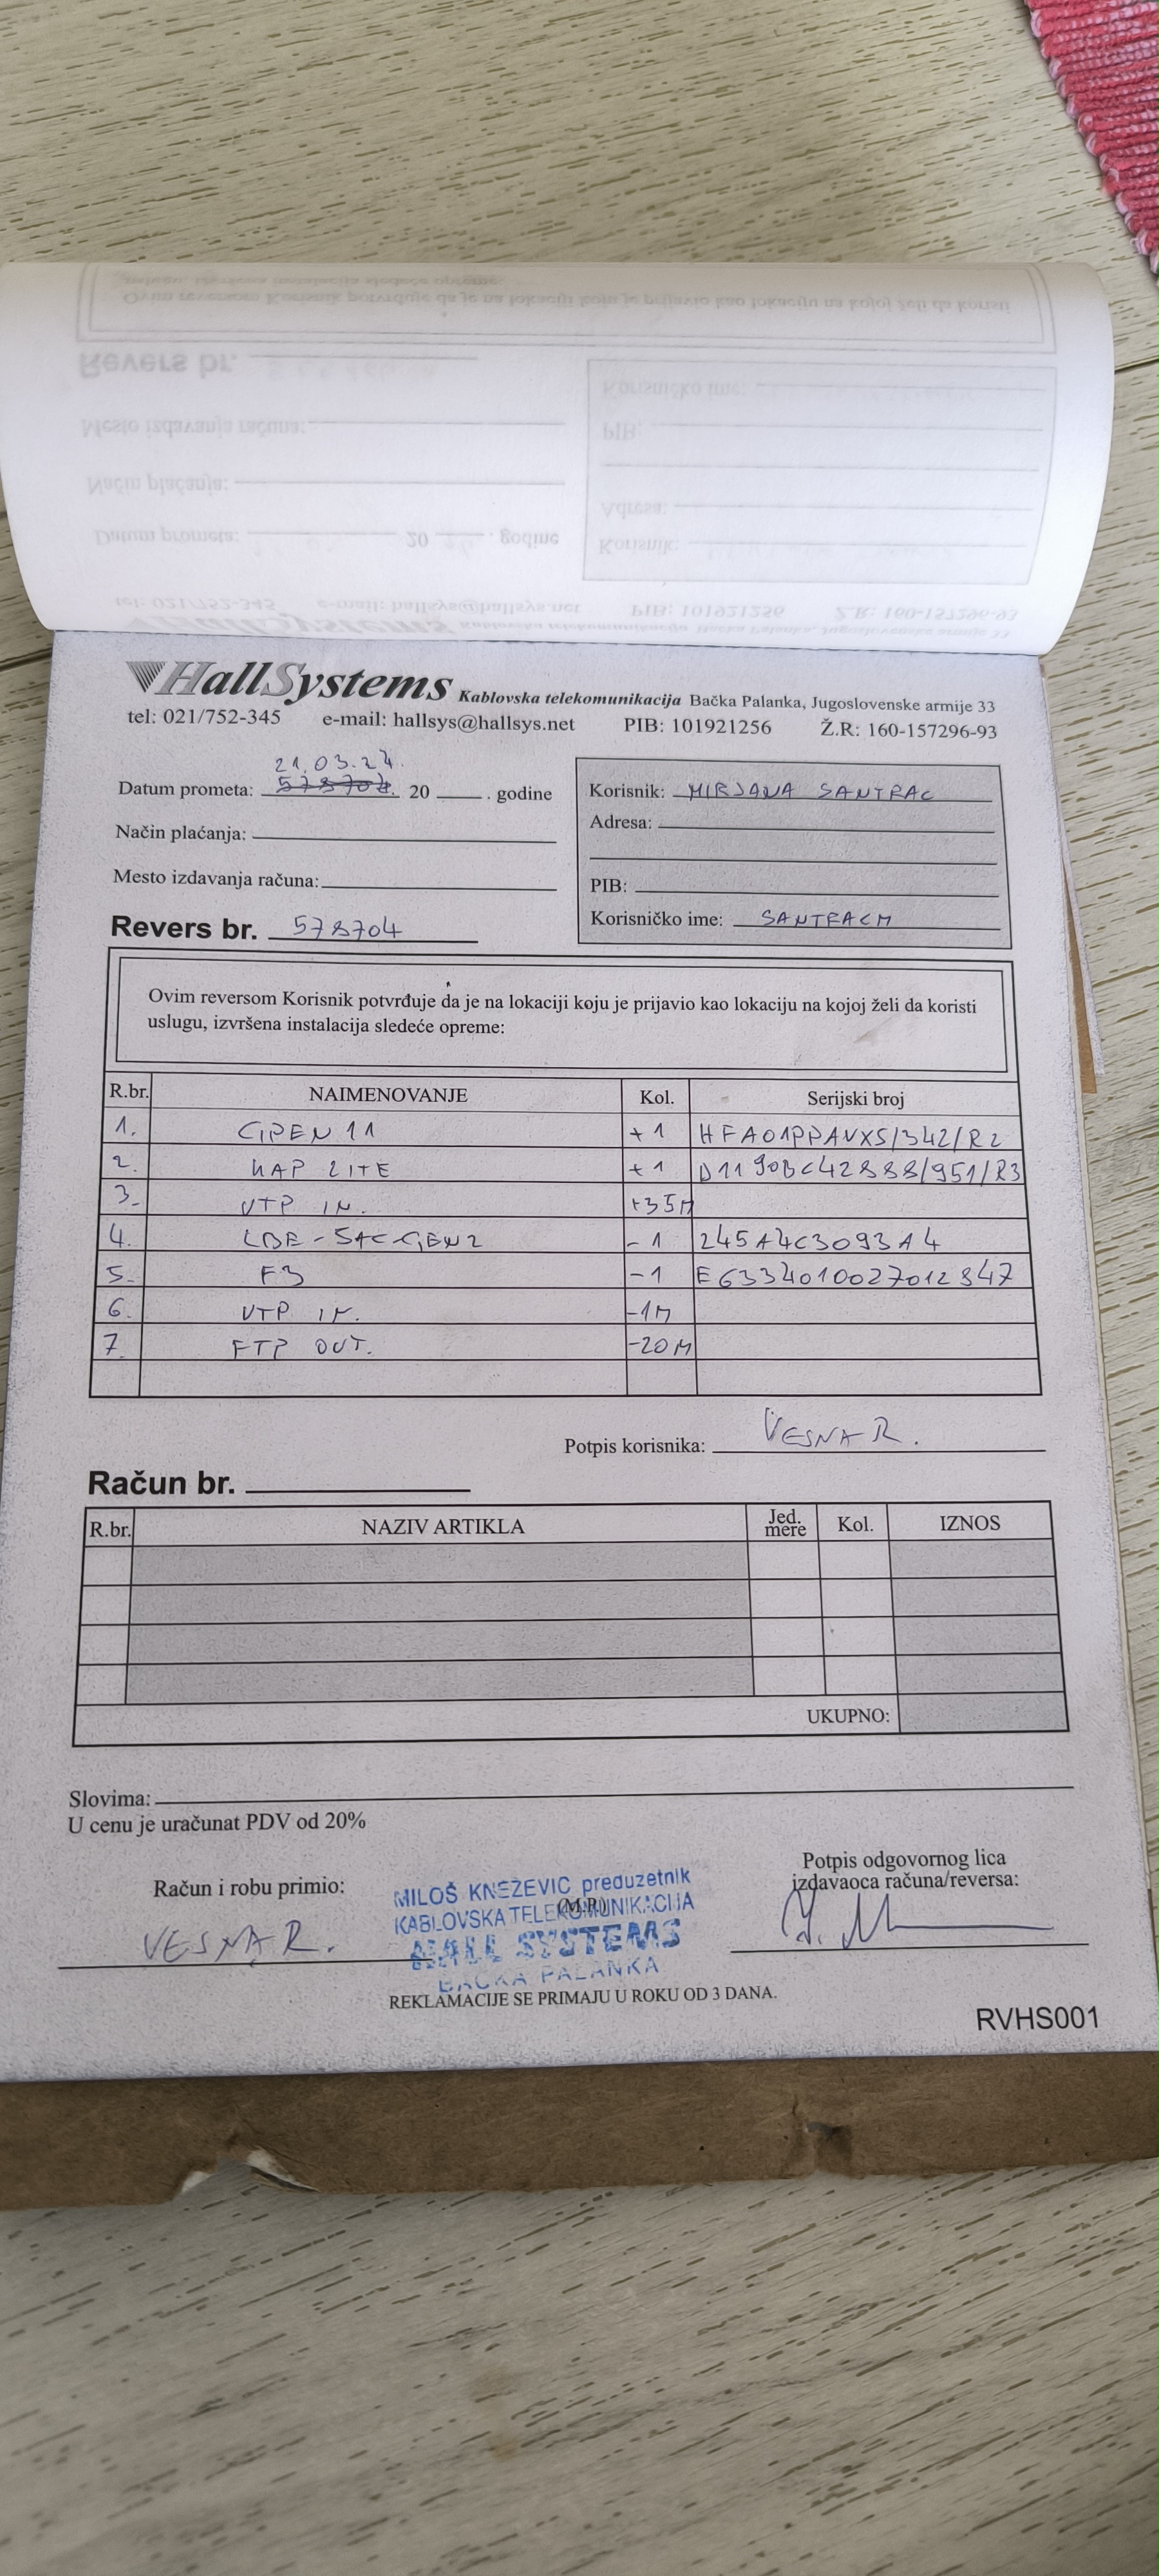 HallSystems Kablovska telekomunikacija Bačka Palanka, Jugoslovenske armije 33
tel: 021/752-345 e-mail: hallsys@hallsys.net PIB: 101921256 Ž.R: 160-157296-93
21.03.24.
Datum prometa: 578704. 20 . godine
Način plaćanja:
Mesto izdavanja računa:
Revers br. 578704
Korisnik: MIRJANA SANTRAC
Adresa:
PIB:
Korisničko ime: SANTRACM
Ovim reversom Korisnik potvrđuje da je na lokaciji koju je prijavio kao lokaciju na kojoj želi da koristi
uslugu, izvršena instalacija sledeće opreme:
R.br. NAIMENOVANJE Kol. Serijski broj
1. GPEN 11 +1 HFA01PPAVXS/342/R2
2. HAP LITE +1 D1190BC42888/951/R3
3. UTP IN. +35M
4. LBE-5AC-GEN2 -1 245A4C3093A4
5. F3 -1 E6334010027012847
6. UTP IN. -1M
7. FTP OUT. -20M
Potpis korisnika: VESNA R.
Račun br.
R.br. NAZIV ARTIKLA Jed. mere Kol. IZNOS
UKUPNO:
Slovima:
U cenu je uračunat PDV od 20%
Račun i robu primio:
VESNA R.
MILOŠ KNEŽEVIĆ preduzetnik
(M.P.)
KABLOVSKA TELEKOMUNIKACIJA
HALL SYSTEMS
BAČKA PALANKA
Potpis odgovornog lica
izdavaoca računa/reversa:
REKLAMACIJE SE PRIMAJU U ROKU OD 3 DANA.
RVHS001